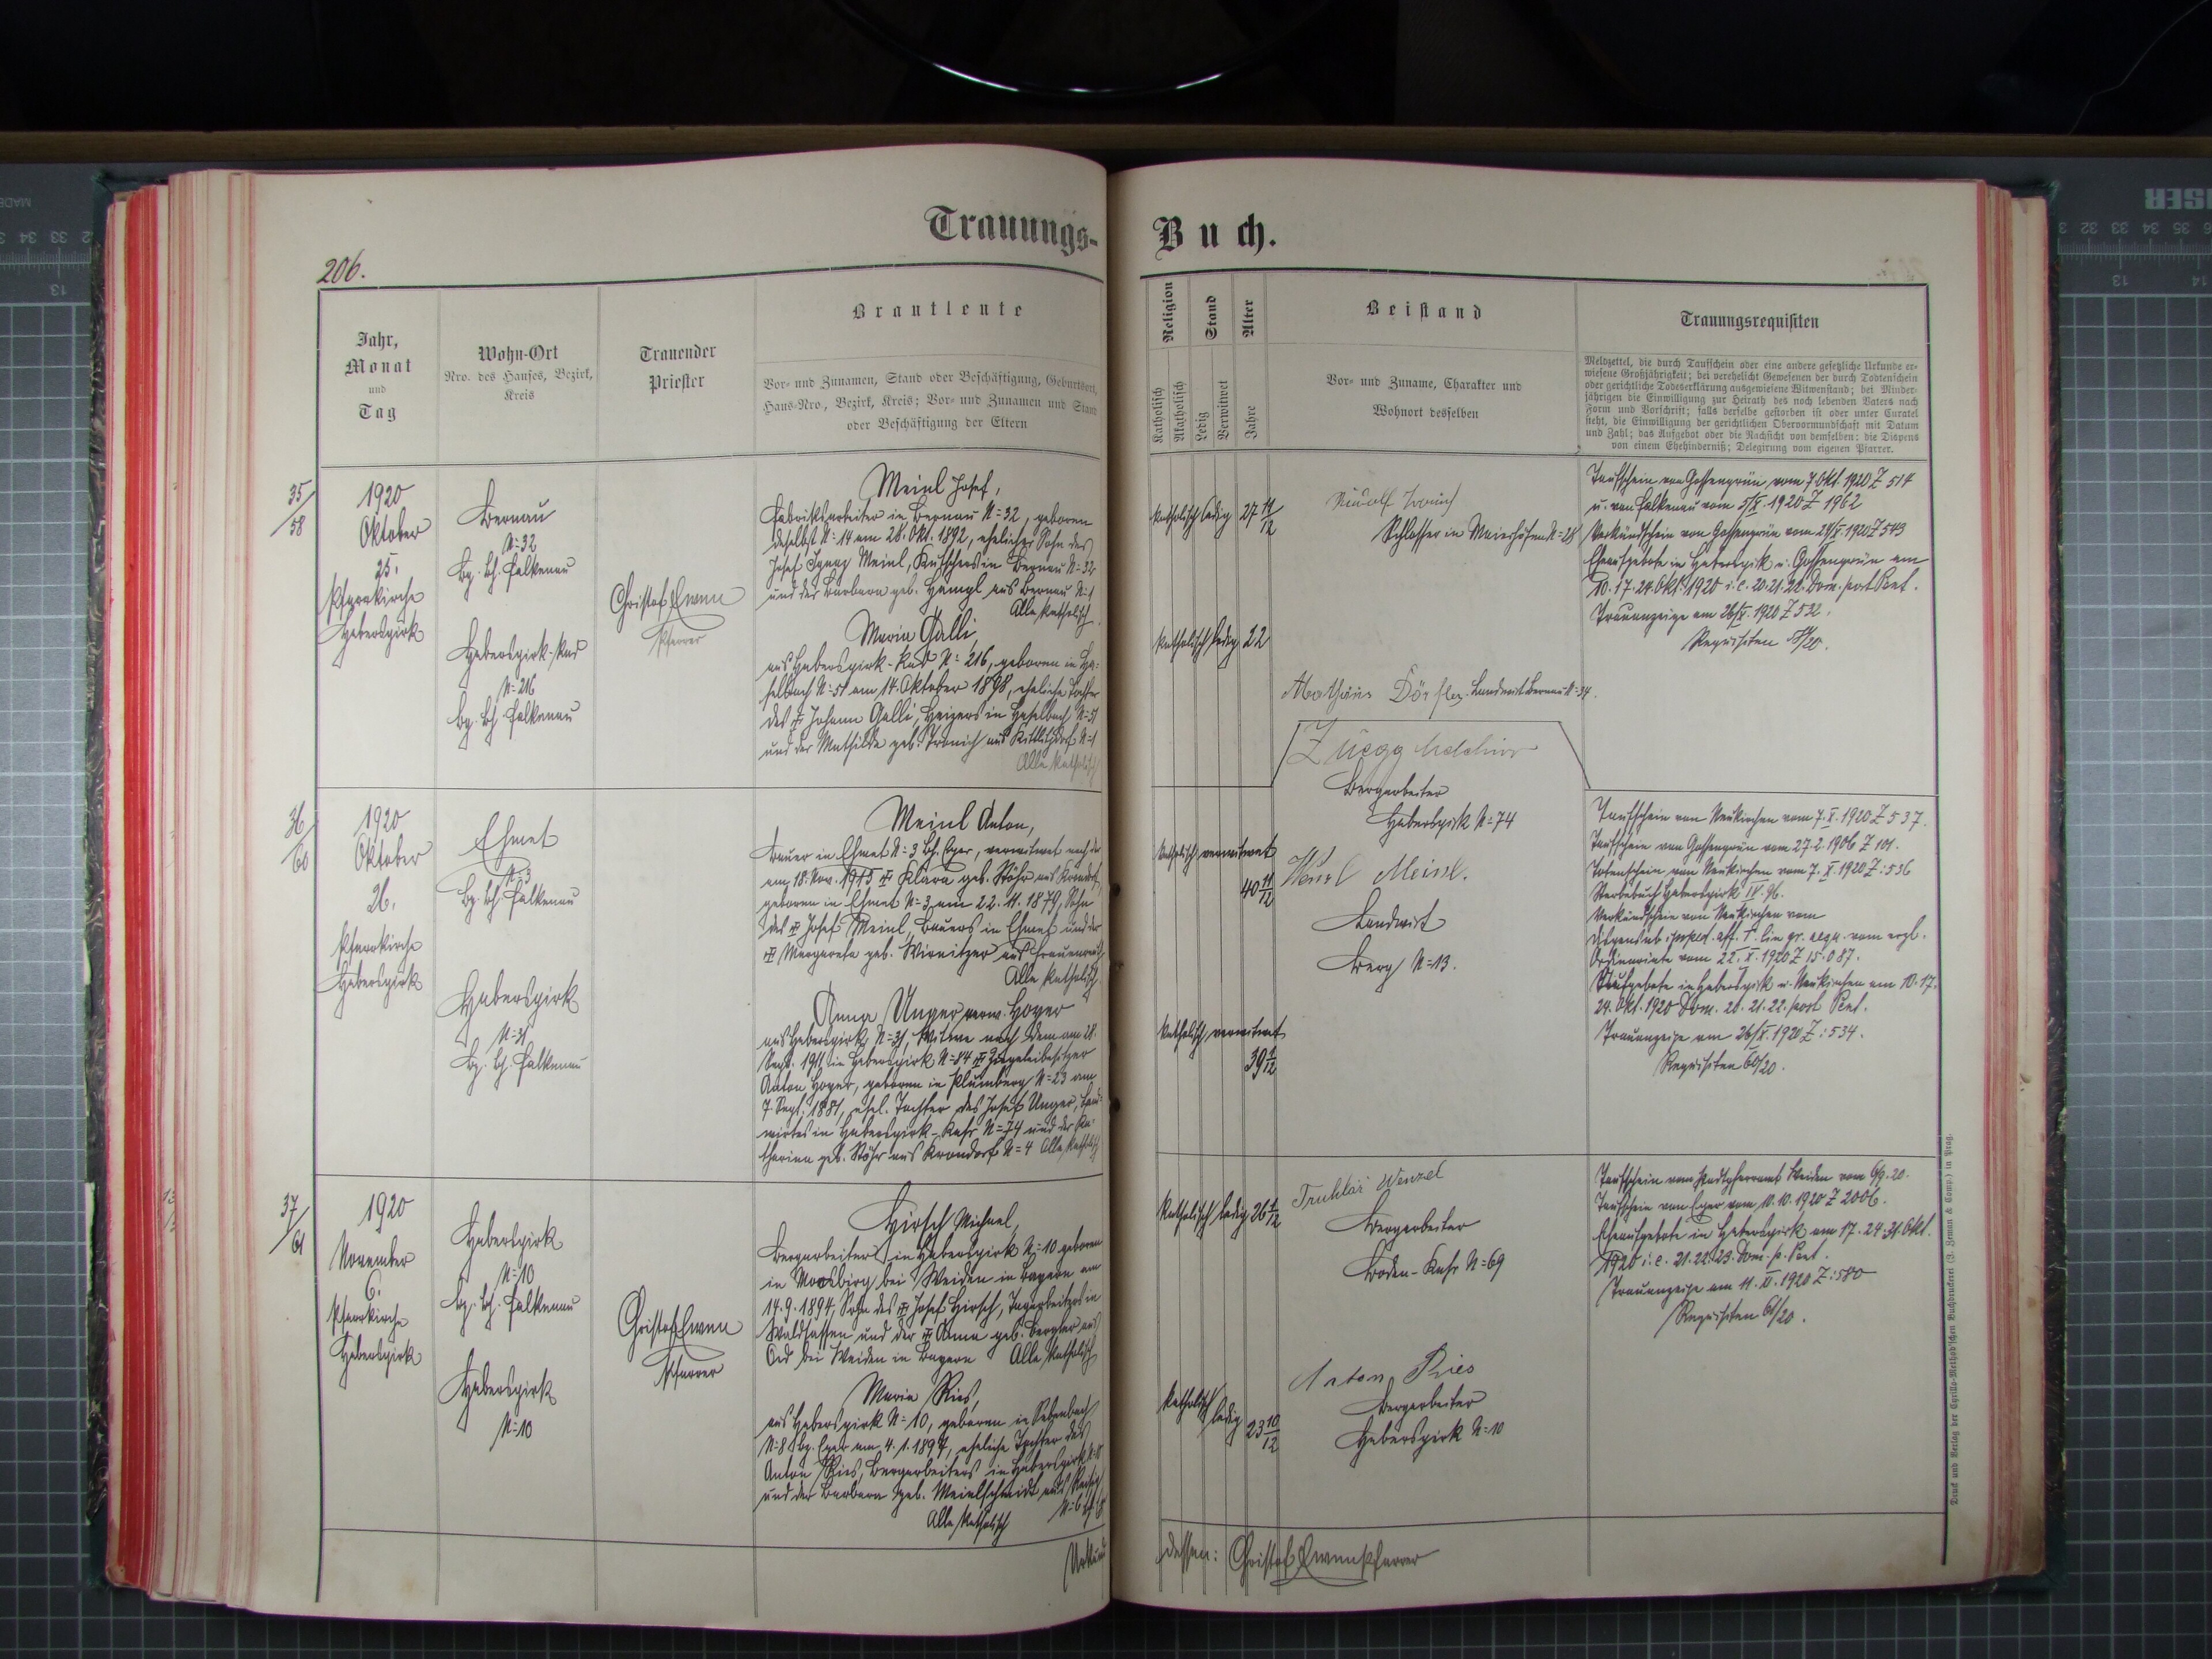 Trauungs-
Buch.
206.
Jahr,
Monat
und
Tag
Wohn-Ort
Nro. des Hauses, Bezirk,
Kreis
Trauender
Priester
Brautleute
Vor- und Zunamen, Stand oder Beschäftigung, Geburtsort,
Haus-Nro., Bezirk, Kreis; Vor- und Zunamen und Stand
oder Beschäftigung der Eltern
Religion
Katholisch
Akatholisch
Stand
Ledig
Verwitwet
Alter
Jahre
Beistand
Vor- und Zuname, Charakter und
Wohnort desselben
Trauungsrequisiten
Meldzettel, die durch Taufschein oder eine andere gesetzliche Urkunde er-
wiesene Großjährigkeit; bei verehelicht Gewesenen der durch Todtenschein
oder gerichtliche Todeserklärung ausgewiesene Witwenstand; bei Minder-
jährigen die Einwilligung zur Heirath des noch lebenden Vaters nach
Form und Vorschrift; falls derselbe gestorben ist oder unter Curatel
steht, die Einwilligung der gerichtlichen Obervormundschaft mit Datum
und Zahl; das Aufgebot oder die Nachsicht von demselben; die Dispens
von einem Ehehinderniß; Delegirung vom eigenen Pfarrer.
35/58
1920
Oktober
25.
Pfarrkirche
Habersgirk
Bernau
N=32
Bz. Bh. Falkenau
Habersgirk-
N=216
Bz. Bh. Falkenau
Christof
Pfarrer
Meinl Josef,
Fabriksarbeiter in Bernau N=32, geboren
daselbst N=14 am 28. Okt. 1892, ehelicher Sohn des
Josef Ignaz Meinl, Kutschers in Bernau N=32
und der Barbara geb. Hampl aus Bernau N=1
Alle katholisch.
Maria Galli,
aus Habersgirk- N=216, geboren in Ha-
selbach N=51 am 14. Oktober 1898, eheliche Tochter
des Johann Galli, Heizers in Haselbach N=51
und der Mathilde geb. Tronich aus Kittlitzdorf N=1
Alle katholisch
katholisch ledig 27 11/12
katholisch ledig 22
Rudolf
Schlosser in Maierhöfen N=28
Mathäus Dörfler Landwirt Bernau N=34.
Taufschein von Gossengrün vom 7 Okt. 1920 Z 514
u. von Falkenau vom 5/X. 1920 Z 1962
Verkündschein von Gossengrün vom 24/X. 1920 Z 543
Eheaufgebote in Habersgirk u. Gossengrün am
10. 17. 24. Okt. 1920 i. e. 20. 21. 22. Dom. post Pent.
Trauanzeige am 26/X. 1920 Z 532.
Requisiten 58/20.
36/60
1920
Oktober
26.
Pfarrkirche
Habersgirk
Ehmet
N=3
Bz. Bh. Falkenau
Habersgirk
N=31
Bz. Bh. Falkenau
Meinl Anton,
Bauer in Ehmet N=3 Bh. Eger, verwitwet nach der
am 18. Nov. 1915 Klara geb. Stöhr aus Krondorf,
geboren in Ehmet N=3 am 22. 11. 1879, Sohn
des Josef Meinl, Bauers in Ehmet und der
Margareta geb. Wirnitzer aus Frauenreuth
Alle katholisch
Anna Unger verw. Hoyer
aus Habersgirk N=31, Witwe nach dem am 28.
Sept. 1911 in Habersgirk N=84 Ziegeleibesitzer
Anton Hoyer, geboren in Plumberg N=23 am
7. Sept. 1881, ehel. Tochter des Josef Unger, Land-
wirtes in Habersgirk- N=74 und der Ka-
tharina geb. Stöhr aus Krondorf N=4 Alle katholisch
katholisch verwitwet
40 11/12
katholisch verwitwet
39 1/12
Zuegg Melchior
Bergarbeiter
Habersgirk N=74
Wenzl Meinl.
Landwirt
Berg N=13.
Taufschein von Neukirchen vom 7. X. 1920 Z 537.
Taufschein von Gossengrün vom 27. 2. 1906 Z 101.
Totenschein von Neukirchen vom 7. X. 1920 Z: 536
Sterbebuch Habersgirk IV. 96.
Verkündschein von Neukirchen vom
Ordinariate vom 22. X. 1920 Z 15.087.
Aufgebote in Habersgirk u. Neukirchen am 10. 17.
24. Okt. 1920 Dom. 20. 21. 22. post Pent.
Trauanzeige am 26/X. 1920 Z: 534.
Requisiten 60/20.
37/61
1920
November
6.
Pfarrkirche
Habersgirk
Habersgirk
N=10
Bz. Bh. Falkenau
Habersgirk
N=10
Christof
Pfarrer
Hirsch Michael,
Bergarbeiter in Habersgirk N=10 geboren
in Moosbürg bei Weiden in Bayern am
14. 9. 1894, Sohn des Josef Hirsch, Tagarbeiters in
Waldsassen und der Anna geb. Bergler aus
Öd bei Weiden in Bayern Alle katholisch
Maria Ries,
aus Habersgirk N=10, geboren in Sebenbach
N=8 Bz. Eger am 4. 1. 1897, eheliche Tochter des
Anton Ries, Bergarbeiters in Habersgirk
und der Barbara geb. Meinlschmidt aus
Alle katholisch
katholisch ledig 26 1/12
katholisch ledig 23 10/12
Truhlář Wenzel
Bergarbeiter
Boden- N=69
Anton Ries
Bergarbeiter
Habersgirk N=10
Taufschein vom Stadtpfarramt Weiden vom 6/9. 20.
Taufschein von Eger vom 10. 10. 1920 Z 2006.
Eheaufgebote in Habersgirk am 17. 24. 31. Okt.
1920 i. e. 21. 22. 23. Dom. p. Pent.
Trauanzeige am 11. XI. 1920 Z: 580
Requisiten 61/20.
Urkund
dessen: Christof Pfarrer
Druck und Verlag der Cyrillo-Method'schen Buchdruckerei (J. Zeman & Comp.) in Prag.